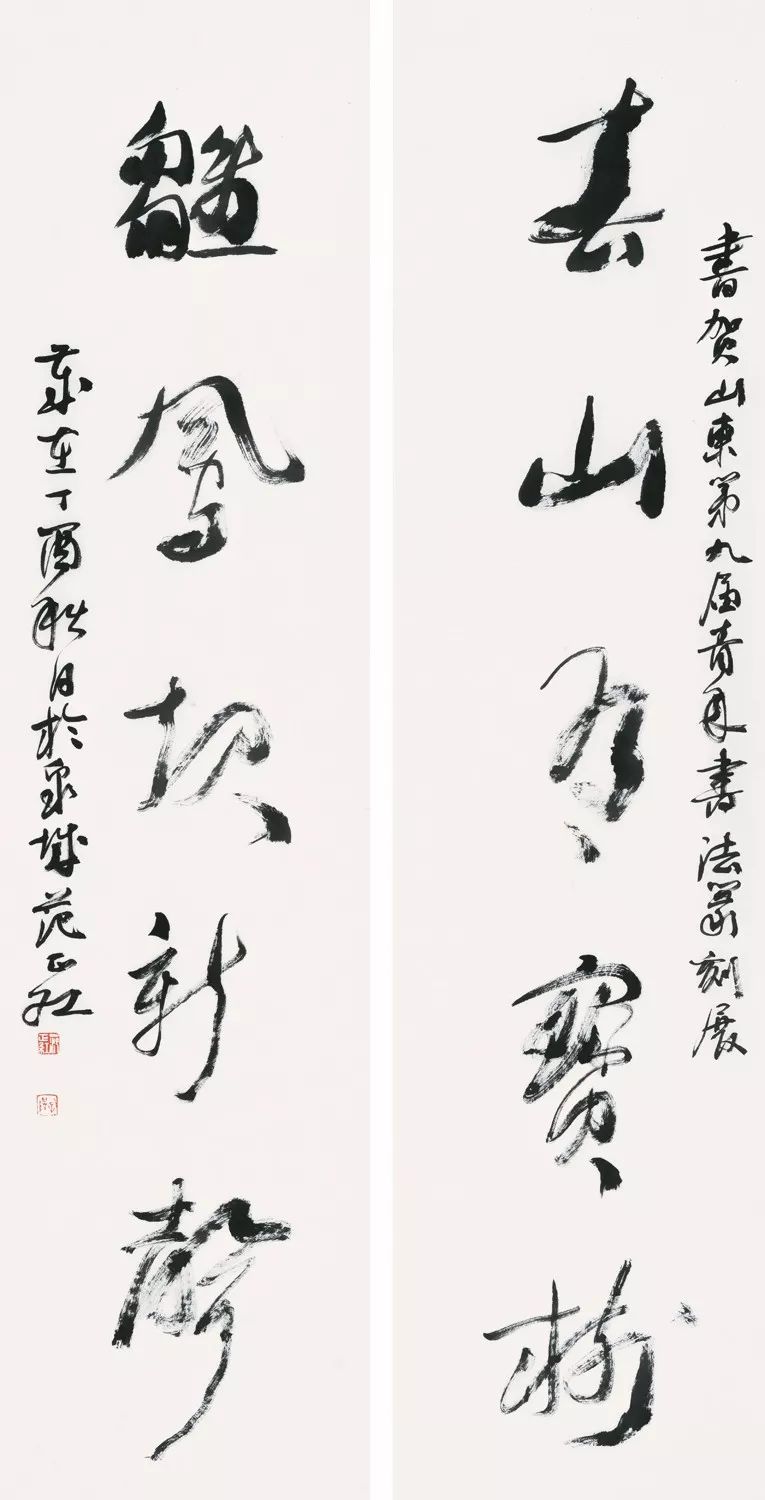 書賀山東第九届青年書法篆刻展
春山有寶樹
雛鳳起新聲
歲在丁酉秋日於泉城范正紅